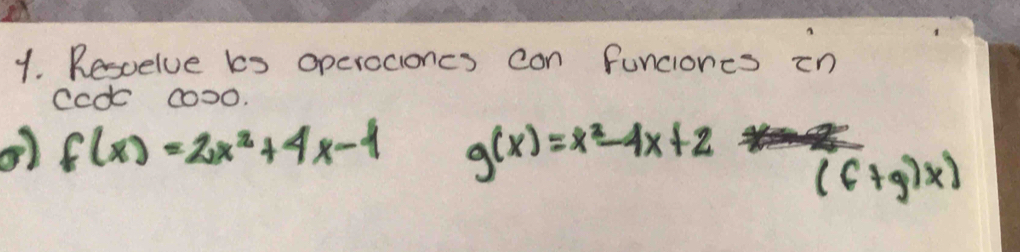 1. Resuelve las operaciones con funciones en
cada caso.
a) f(x) = 2x² + 4x - 1 g(x) = x² - 4x + 2 (f + g)x)